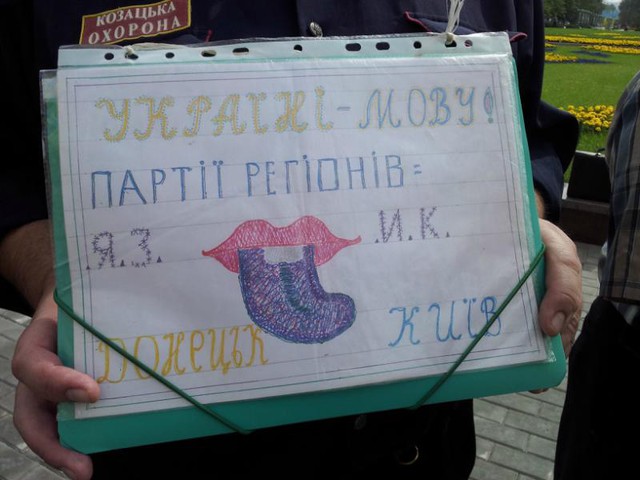 КОЗАЦЬКА
ОХОРОНА
УКРАЇНІ - МОВУ!
ПАРТІЇ РЕГІОНІВ =
.Я.З. .И.К.
ДОНЕЦЬК КИЇВ